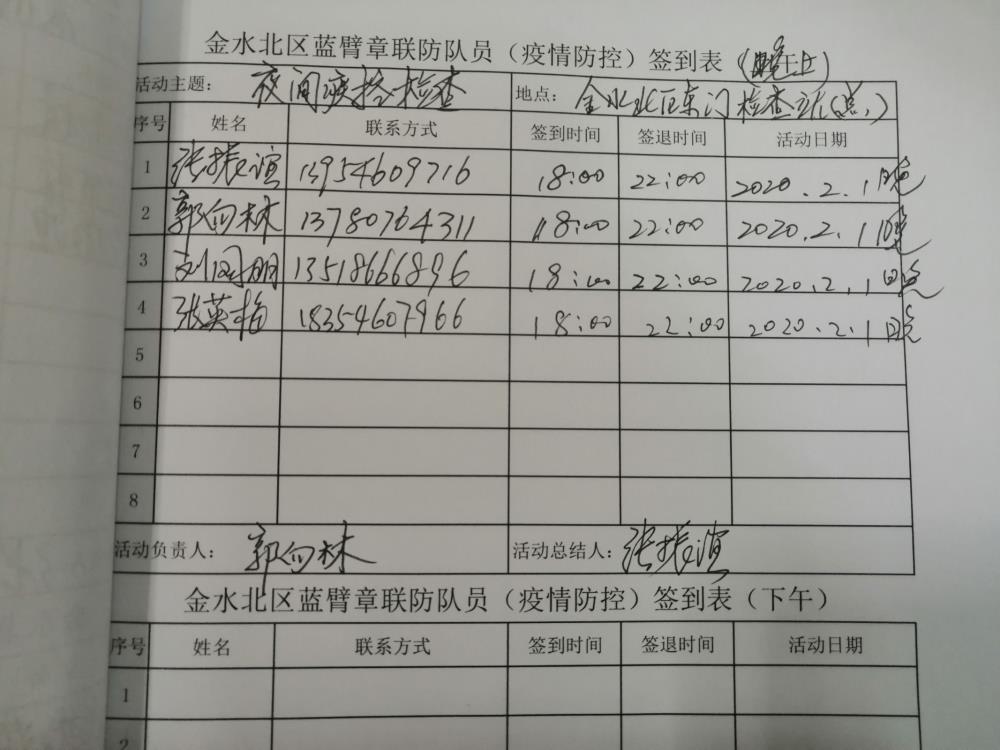 金水北区蓝臂章联防队员（疫情防控）签到表（晚上）
活动主题： 夜间疫控检查 地点： 金水北区东门检查站(点)
序号 姓名 联系方式 签到时间 签退时间 活动日期
1 张振谊 13954609716 18:00 22:00 2020.2.1日晚
2 郭向林 13780764311 18:00 22:00 2020.2.1日晚
3 13518666896 18:00 22:00 2020.2.1日晚
4 张英梅 18354607966 18:00 22:00 2020.2.1日晚
5
6
7
8
活动负责人： 郭向林 活动总结人： 张振谊
金水北区蓝臂章联防队员（疫情防控）签到表（下午）
序号 姓名 联系方式 签到时间 签退时间 活动日期
1
2